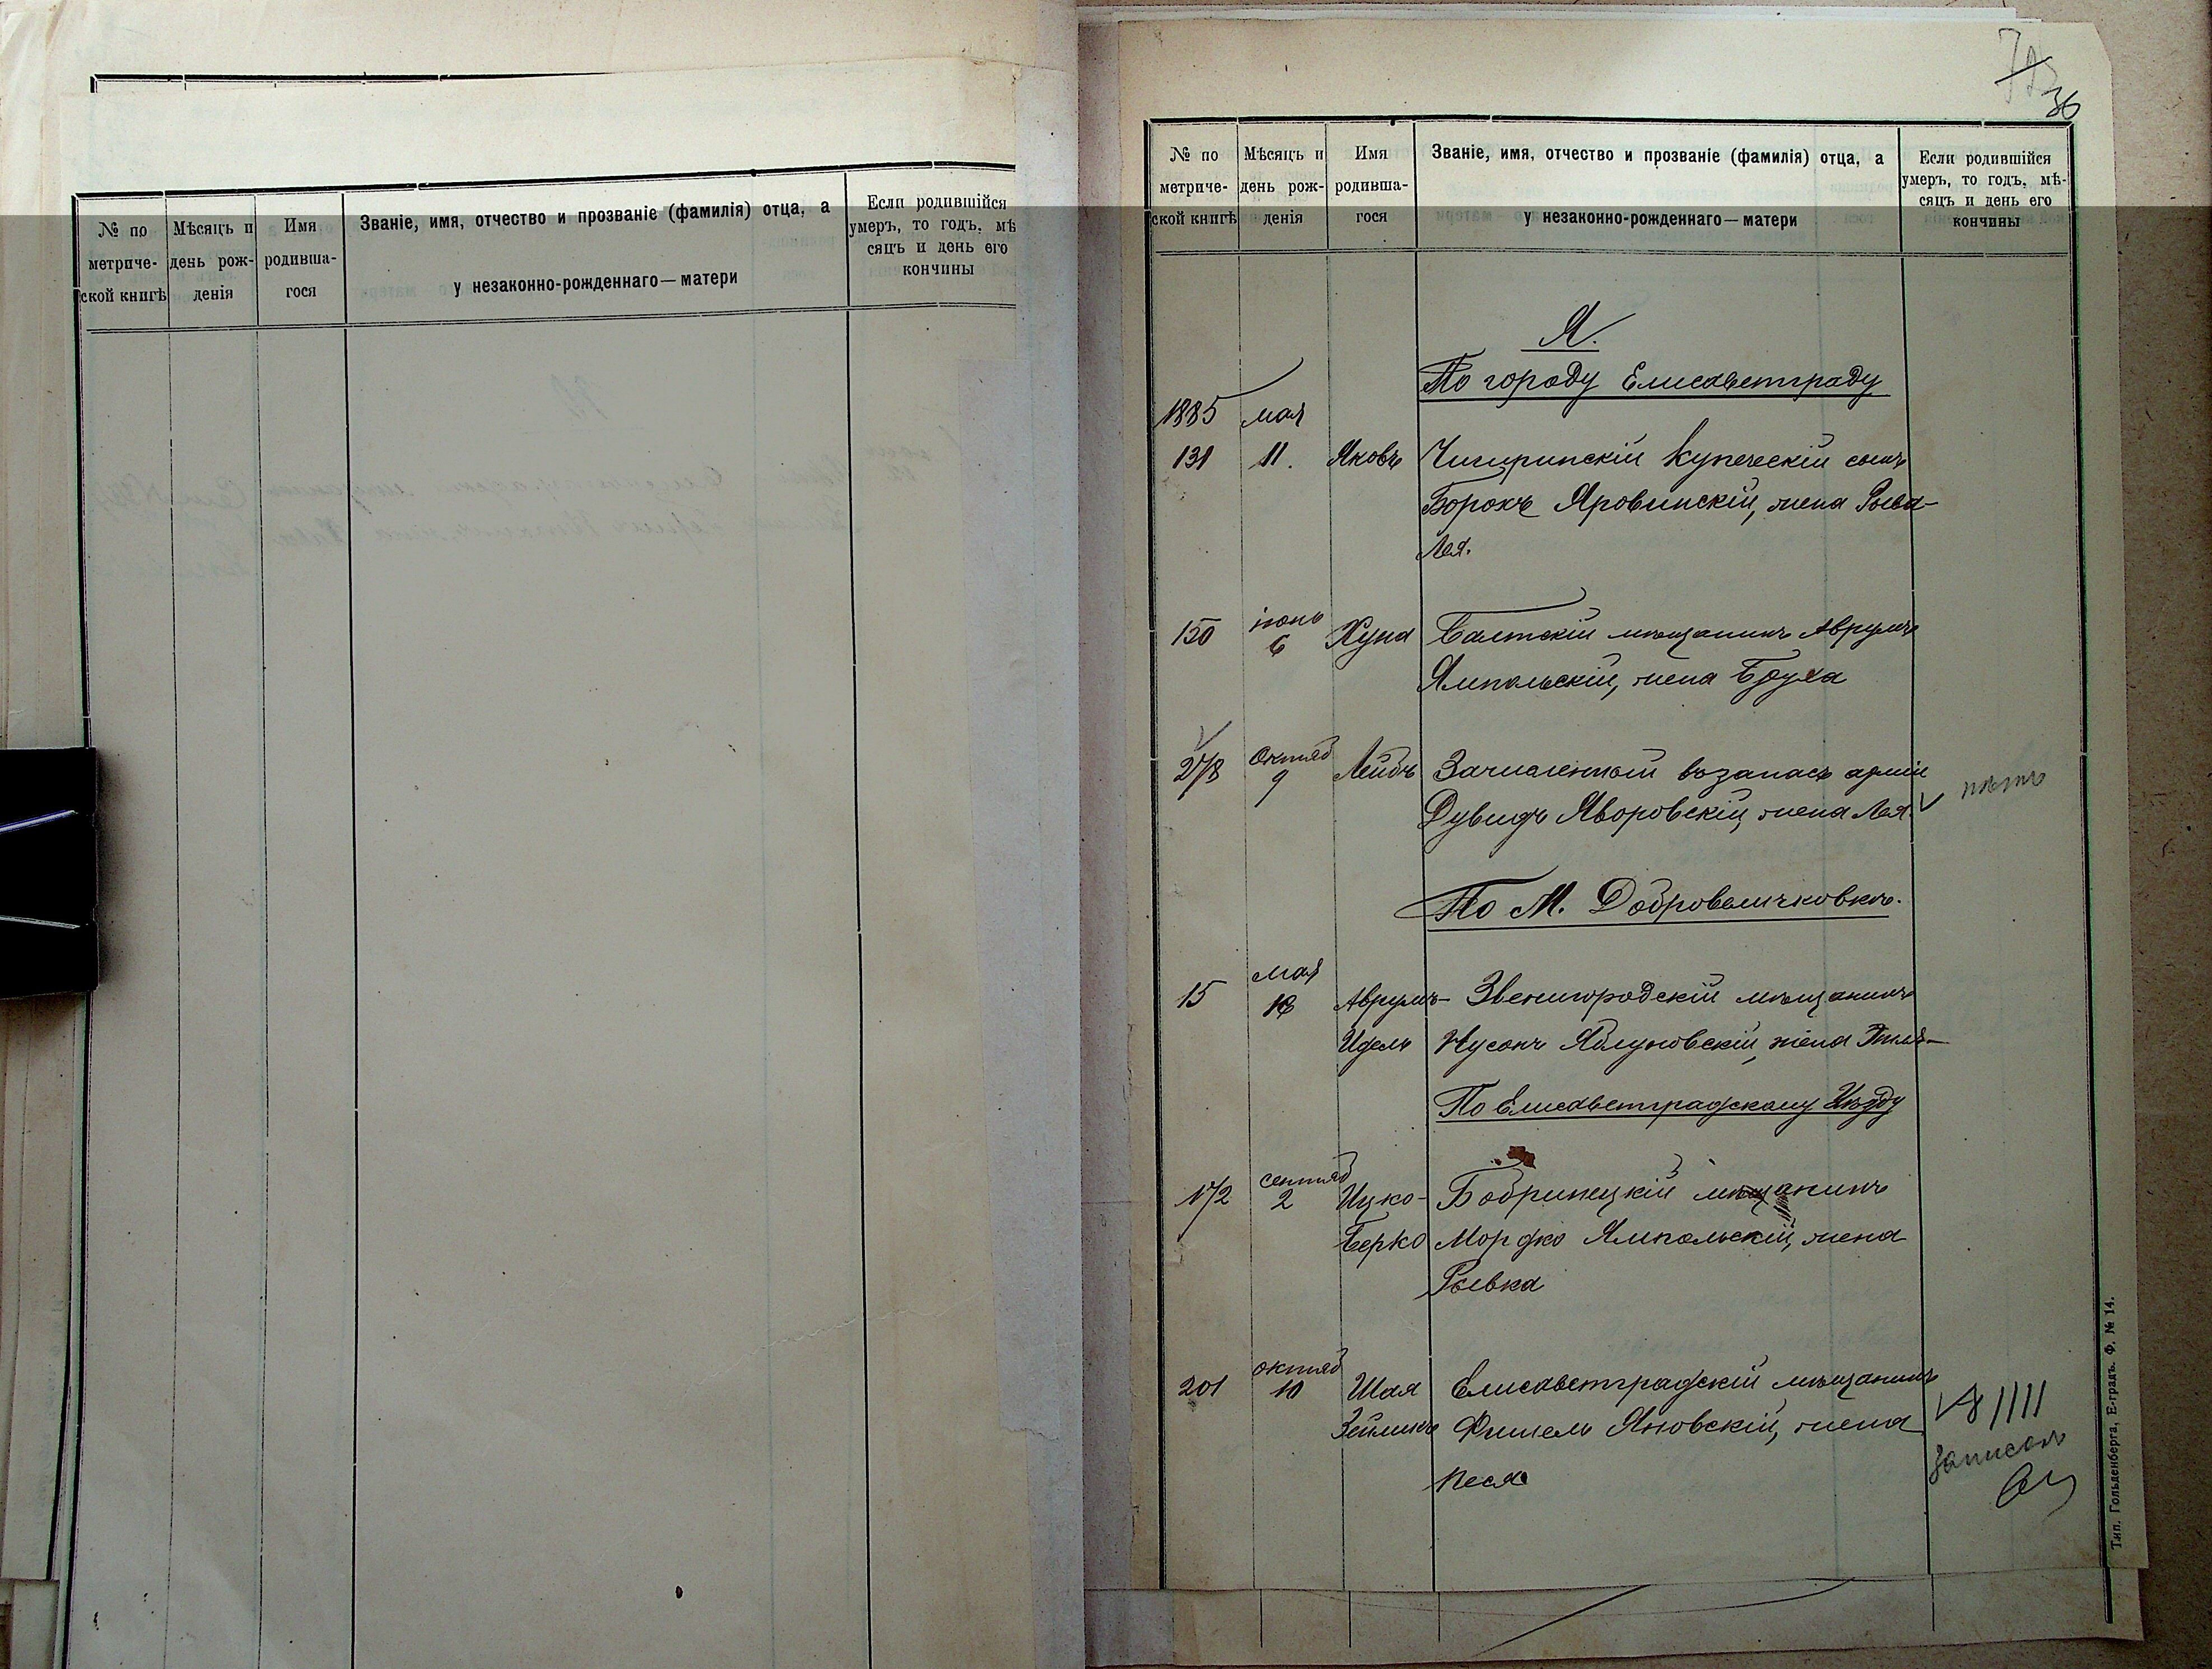 № по метриче-ской книгѣ
Мѣсяцъ и день рож-денія
Имя родивша-гося
Званіе, имя, отчество и прозваніе (фамилія) отца, а у незаконно-рожденнаго — матери
Если родившійся умеръ, то годъ, мѣ-сяцъ и день его кончины
36
№ по метриче-ской книгѣ
Мѣсяцъ и день рож-денія
Имя родивша-гося
Званіе, имя, отчество и прозваніе (фамилія) отца, а у незаконно-рожденнаго — матери
Если родившійся умеръ, то годъ, мѣ-сяцъ и день его кончины
Я.
По городу Елисаветграду
1885 мая
131 11. Яковъ Чигиринскій купеческій сынъ
Борохъ Яровинскій, жена Рыва-
Лея.
150 іюнь 6 Хуна Балтскій мѣщанинъ Аврумъ
Ямпольскій, жена Бруха
278 Октяб 9 Лейбъ Зачисленный въ запасъ арміи
Дувидъ Яворовскій, жена Лея. нѣтъ
По М. Добровеличковкѣ.
мая
15 18 Аврумъ- Звенигородскій мѣщанинъ
Идель Нусонъ Яблуновскій, жена
По Елисаветградскому Уѣзду
172 сентяб 2 Ицко- Бобринецкій мѣщанинъ
Берко Мордко Ямпольскій, жена
Рывка
201 октяб 10 Шая Елисаветградскій мѣщанинъ
Зейликъ Фишель Яновскій, жена
Песя
записанъ
Тип. Гольденберга, Е-градъ. Ф. № 14.